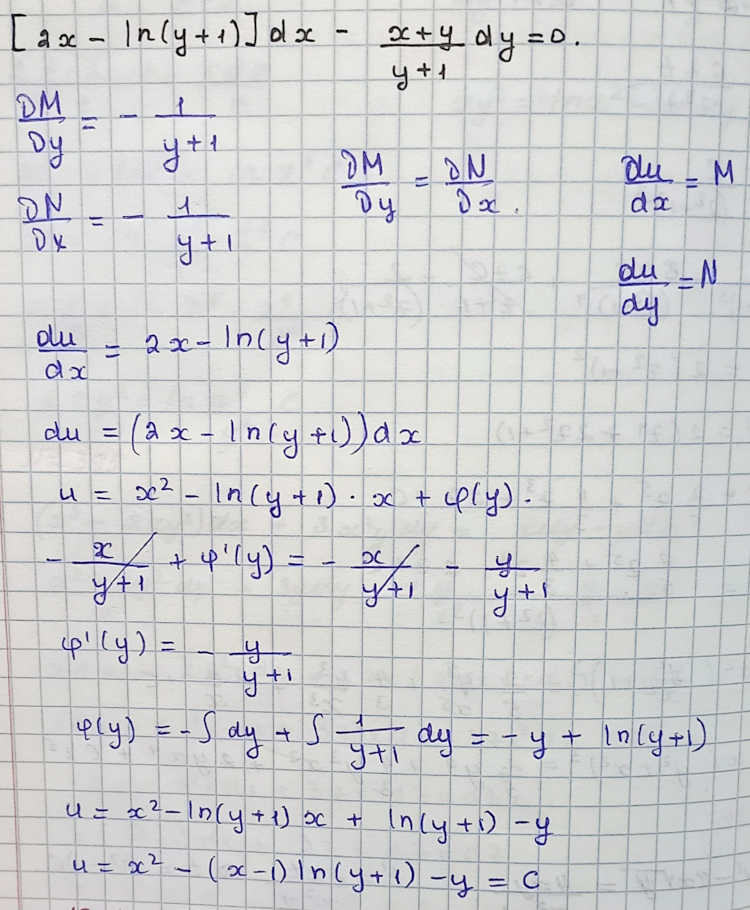 [2x - ln(y+1)]dx - (x+y)/(y+1) dy = 0.
DM/Dy = - 1/(y+1)
DN/Dx = - 1/(y+1)
DM/Dy = DN/Dx.
du/dx = M
du/dy = N
du/dx = 2x - ln(y+1)
du = (2x - ln(y+1))dx
u = x² - ln(y+1) · x + φ(y).
- x/(y+1) + φ'(y) = - x/(y+1) - y/(y+1)
φ'(y) = - y/(y+1)
φ(y) = -∫dy + ∫ 1/(y+1) dy = -y + ln(y+1)
u = x² - ln(y+1)x + ln(y+1) - y
u = x² - (x-1)ln(y+1) - y = C